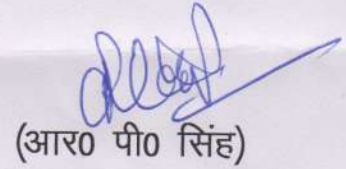 (आर0 पी0 सिंह)